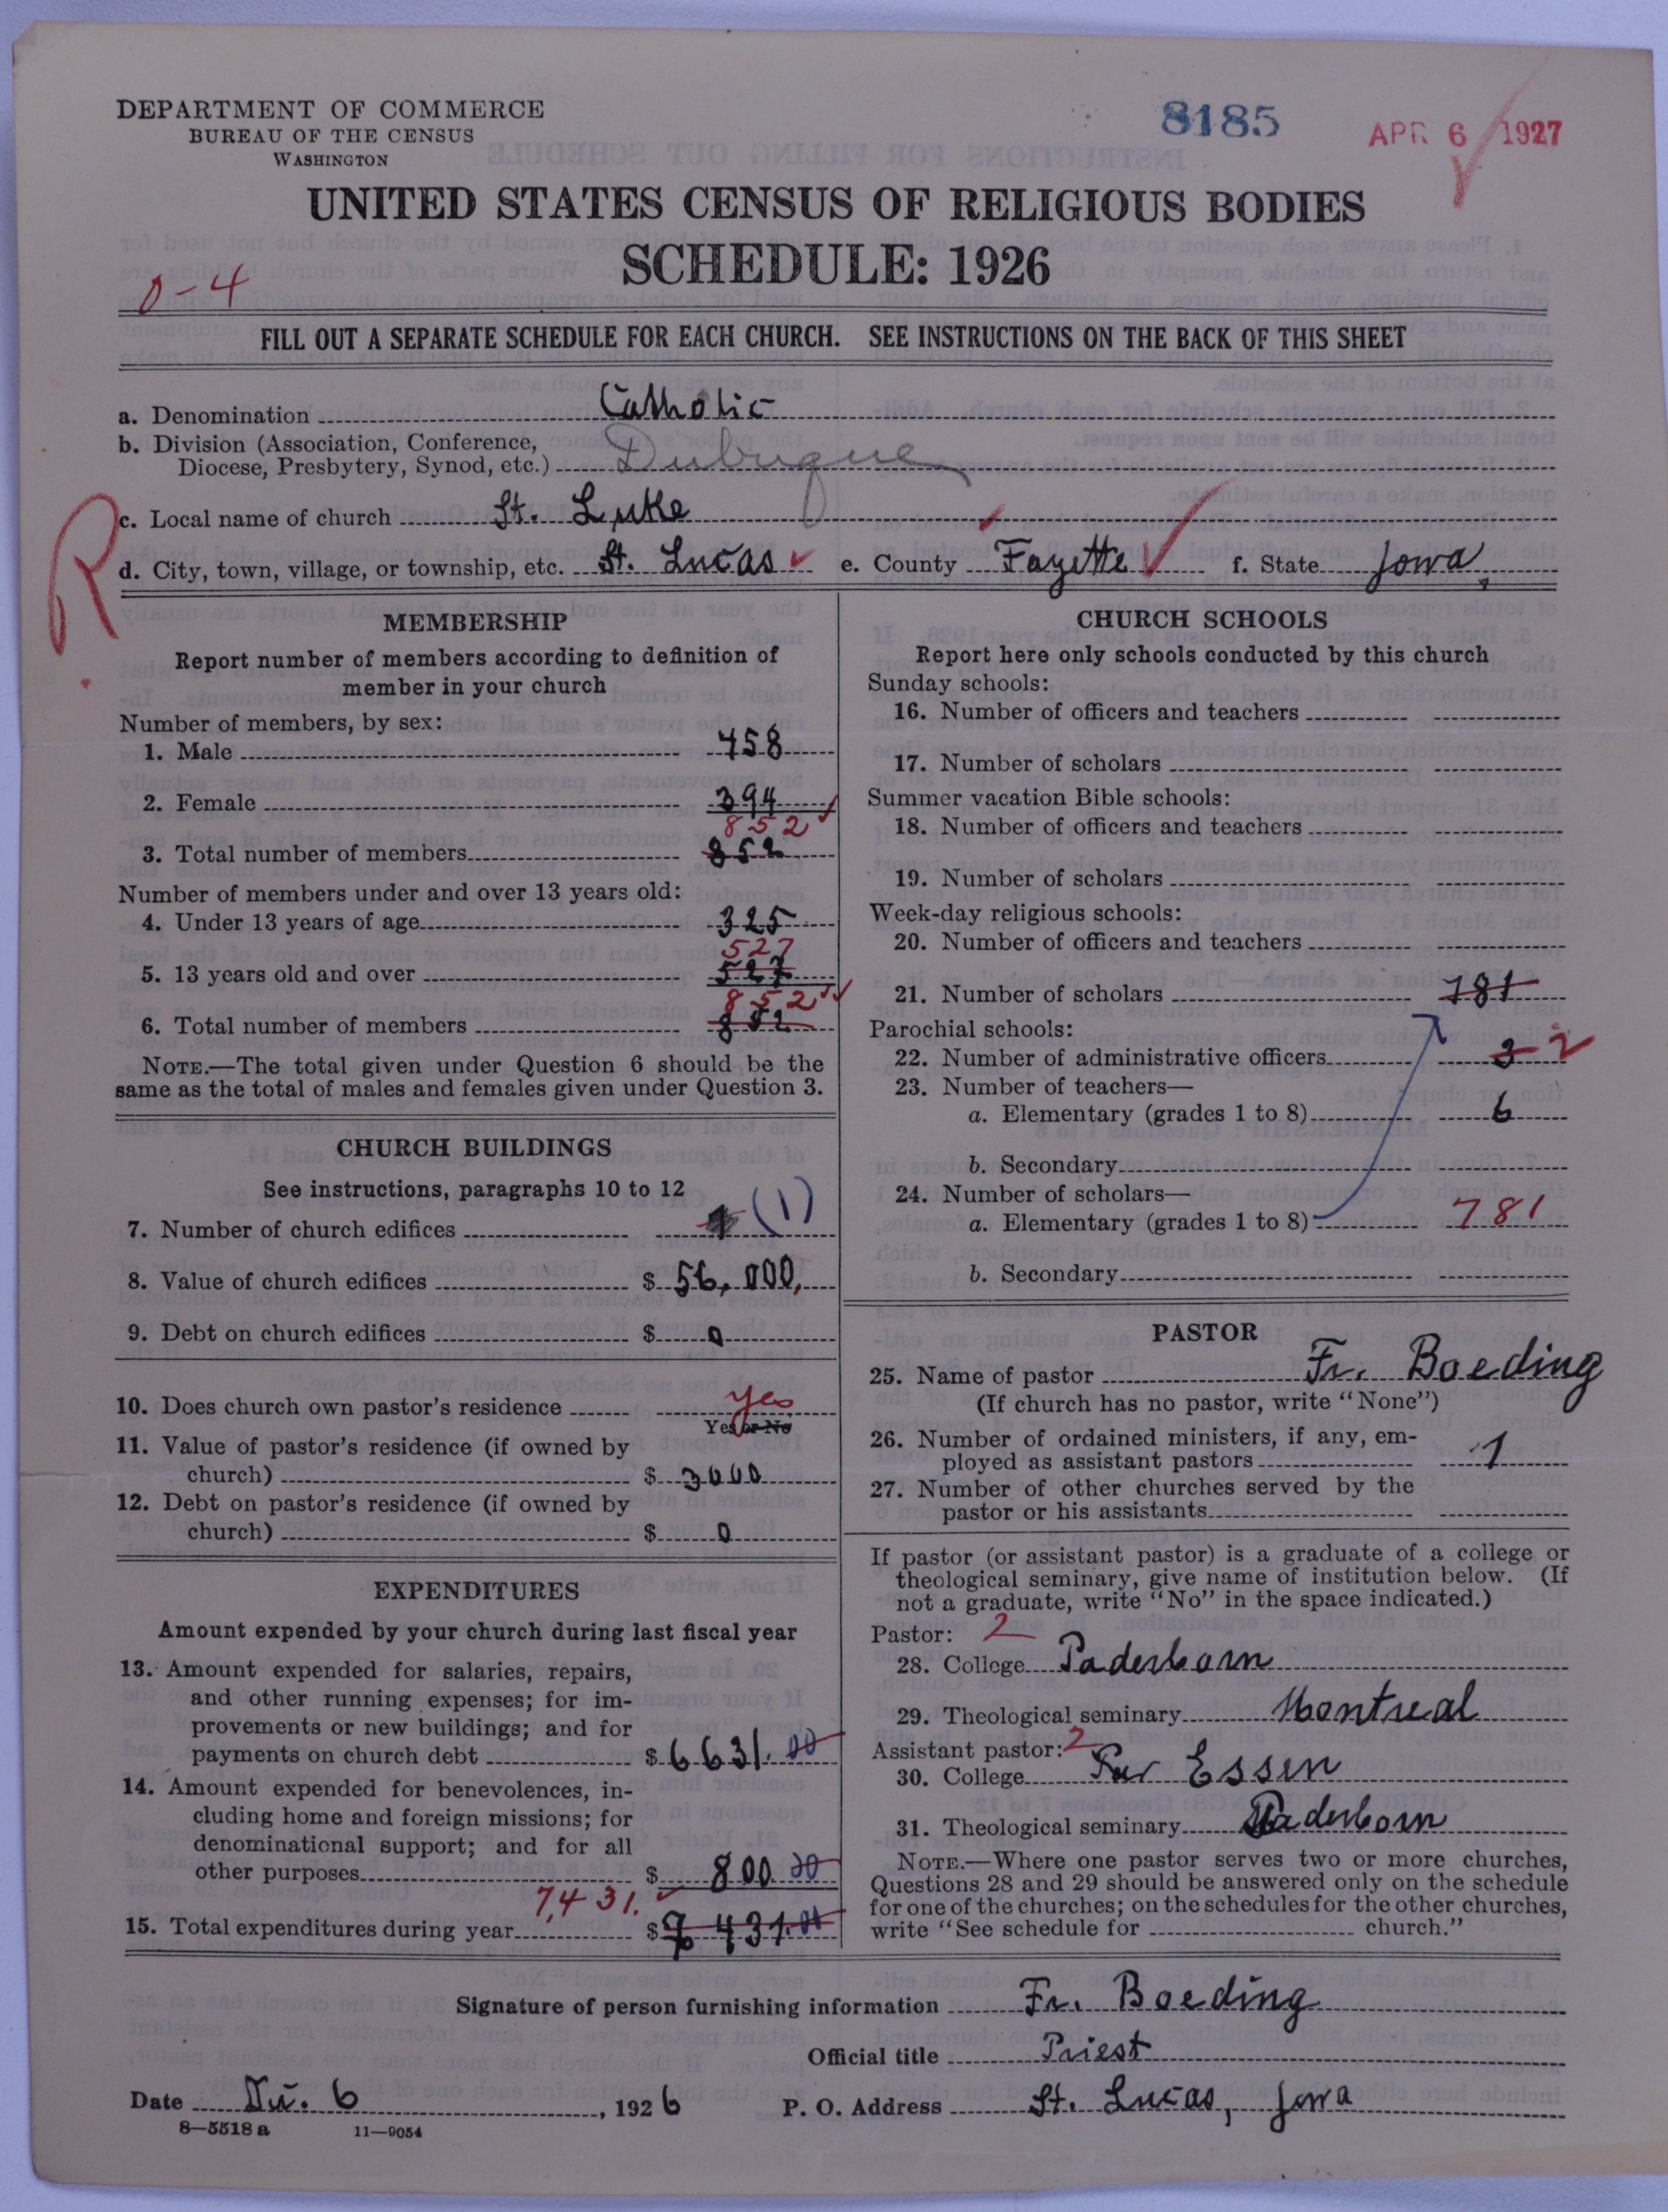 DEPARTMENT OF COMMERCE
BUREAU OF THE CENSUS
WASHINGTON
8185
APR 6 1927
UNITED STATES CENSUS OF RELIGIOUS BODIES
SCHEDULE: 1926
0-4
FILL OUT A SEPARATE SCHEDULE FOR EACH CHURCH. SEE INSTRUCTIONS ON THE BACK OF THIS SHEET
a. Denomination Catholic
b. Division (Association, Conference,
Diocese, Presbytery, Synod, etc.) Dubuque
R
c. Local name of church St. Luke
d. City, town, village, or township, etc. St. Lucas e. County Fayette f. State Iowa
MEMBERSHIP
Report number of members according to definition of
member in your church
Number of members, by sex:
1. Male 458
2. Female 394
852
3. Total number of members 852
Number of members under and over 13 years old:
4. Under 13 years of age 325
527
5. 13 years old and over 527
852
6. Total number of members 852
NOTE.—The total given under Question 6 should be the
same as the total of males and females given under Question 3.
CHURCH BUILDINGS
See instructions, paragraphs 10 to 12
7. Number of church edifices 1 (1)
8. Value of church edifices $ 56,000,
9. Debt on church edifices $ 0
10. Does church own pastor's residence yes
Yes or No
11. Value of pastor's residence (if owned by
church) $ 3000
12. Debt on pastor's residence (if owned by
church) $ 0
EXPENDITURES
Amount expended by your church during last fiscal year
13. Amount expended for salaries, repairs,
and other running expenses; for im-
provements or new buildings; and for
payments on church debt $ 6631.00
14. Amount expended for benevolences, in-
cluding home and foreign missions; for
denominational support; and for all
other purposes $ 800.00
7,431.
15. Total expenditures during year $ 7431.00
CHURCH SCHOOLS
Report here only schools conducted by this church
Sunday schools:
16. Number of officers and teachers
17. Number of scholars
Summer vacation Bible schools:
18. Number of officers and teachers
19. Number of scholars
Week-day religious schools:
20. Number of officers and teachers
21. Number of scholars 181
Parochial schools:
22. Number of administrative officers 3 2
23. Number of teachers—
a. Elementary (grades 1 to 8) 6
b. Secondary
24. Number of scholars—
a. Elementary (grades 1 to 8) 781
b. Secondary
PASTOR
25. Name of pastor Fr. Boeding
(If church has no pastor, write "None")
26. Number of ordained ministers, if any, em-
ployed as assistant pastors 1
27. Number of other churches served by the
pastor or his assistants
If pastor (or assistant pastor) is a graduate of a college or
theological seminary, give name of institution below. (If
not a graduate, write "No" in the space indicated.)
Pastor: 2
28. College Paderborn
29. Theological seminary Montreal
Assistant pastor: 2
30. College Essen
31. Theological seminary Paderborn
NOTE.—Where one pastor serves two or more churches,
Questions 28 and 29 should be answered only on the schedule
for one of the churches; on the schedules for the other churches,
write "See schedule for church."
Signature of person furnishing information Fr. Boeding
Official title Priest
Date 6, 1926 P. O. Address St. Lucas, Iowa
8—5518 a 11—9054